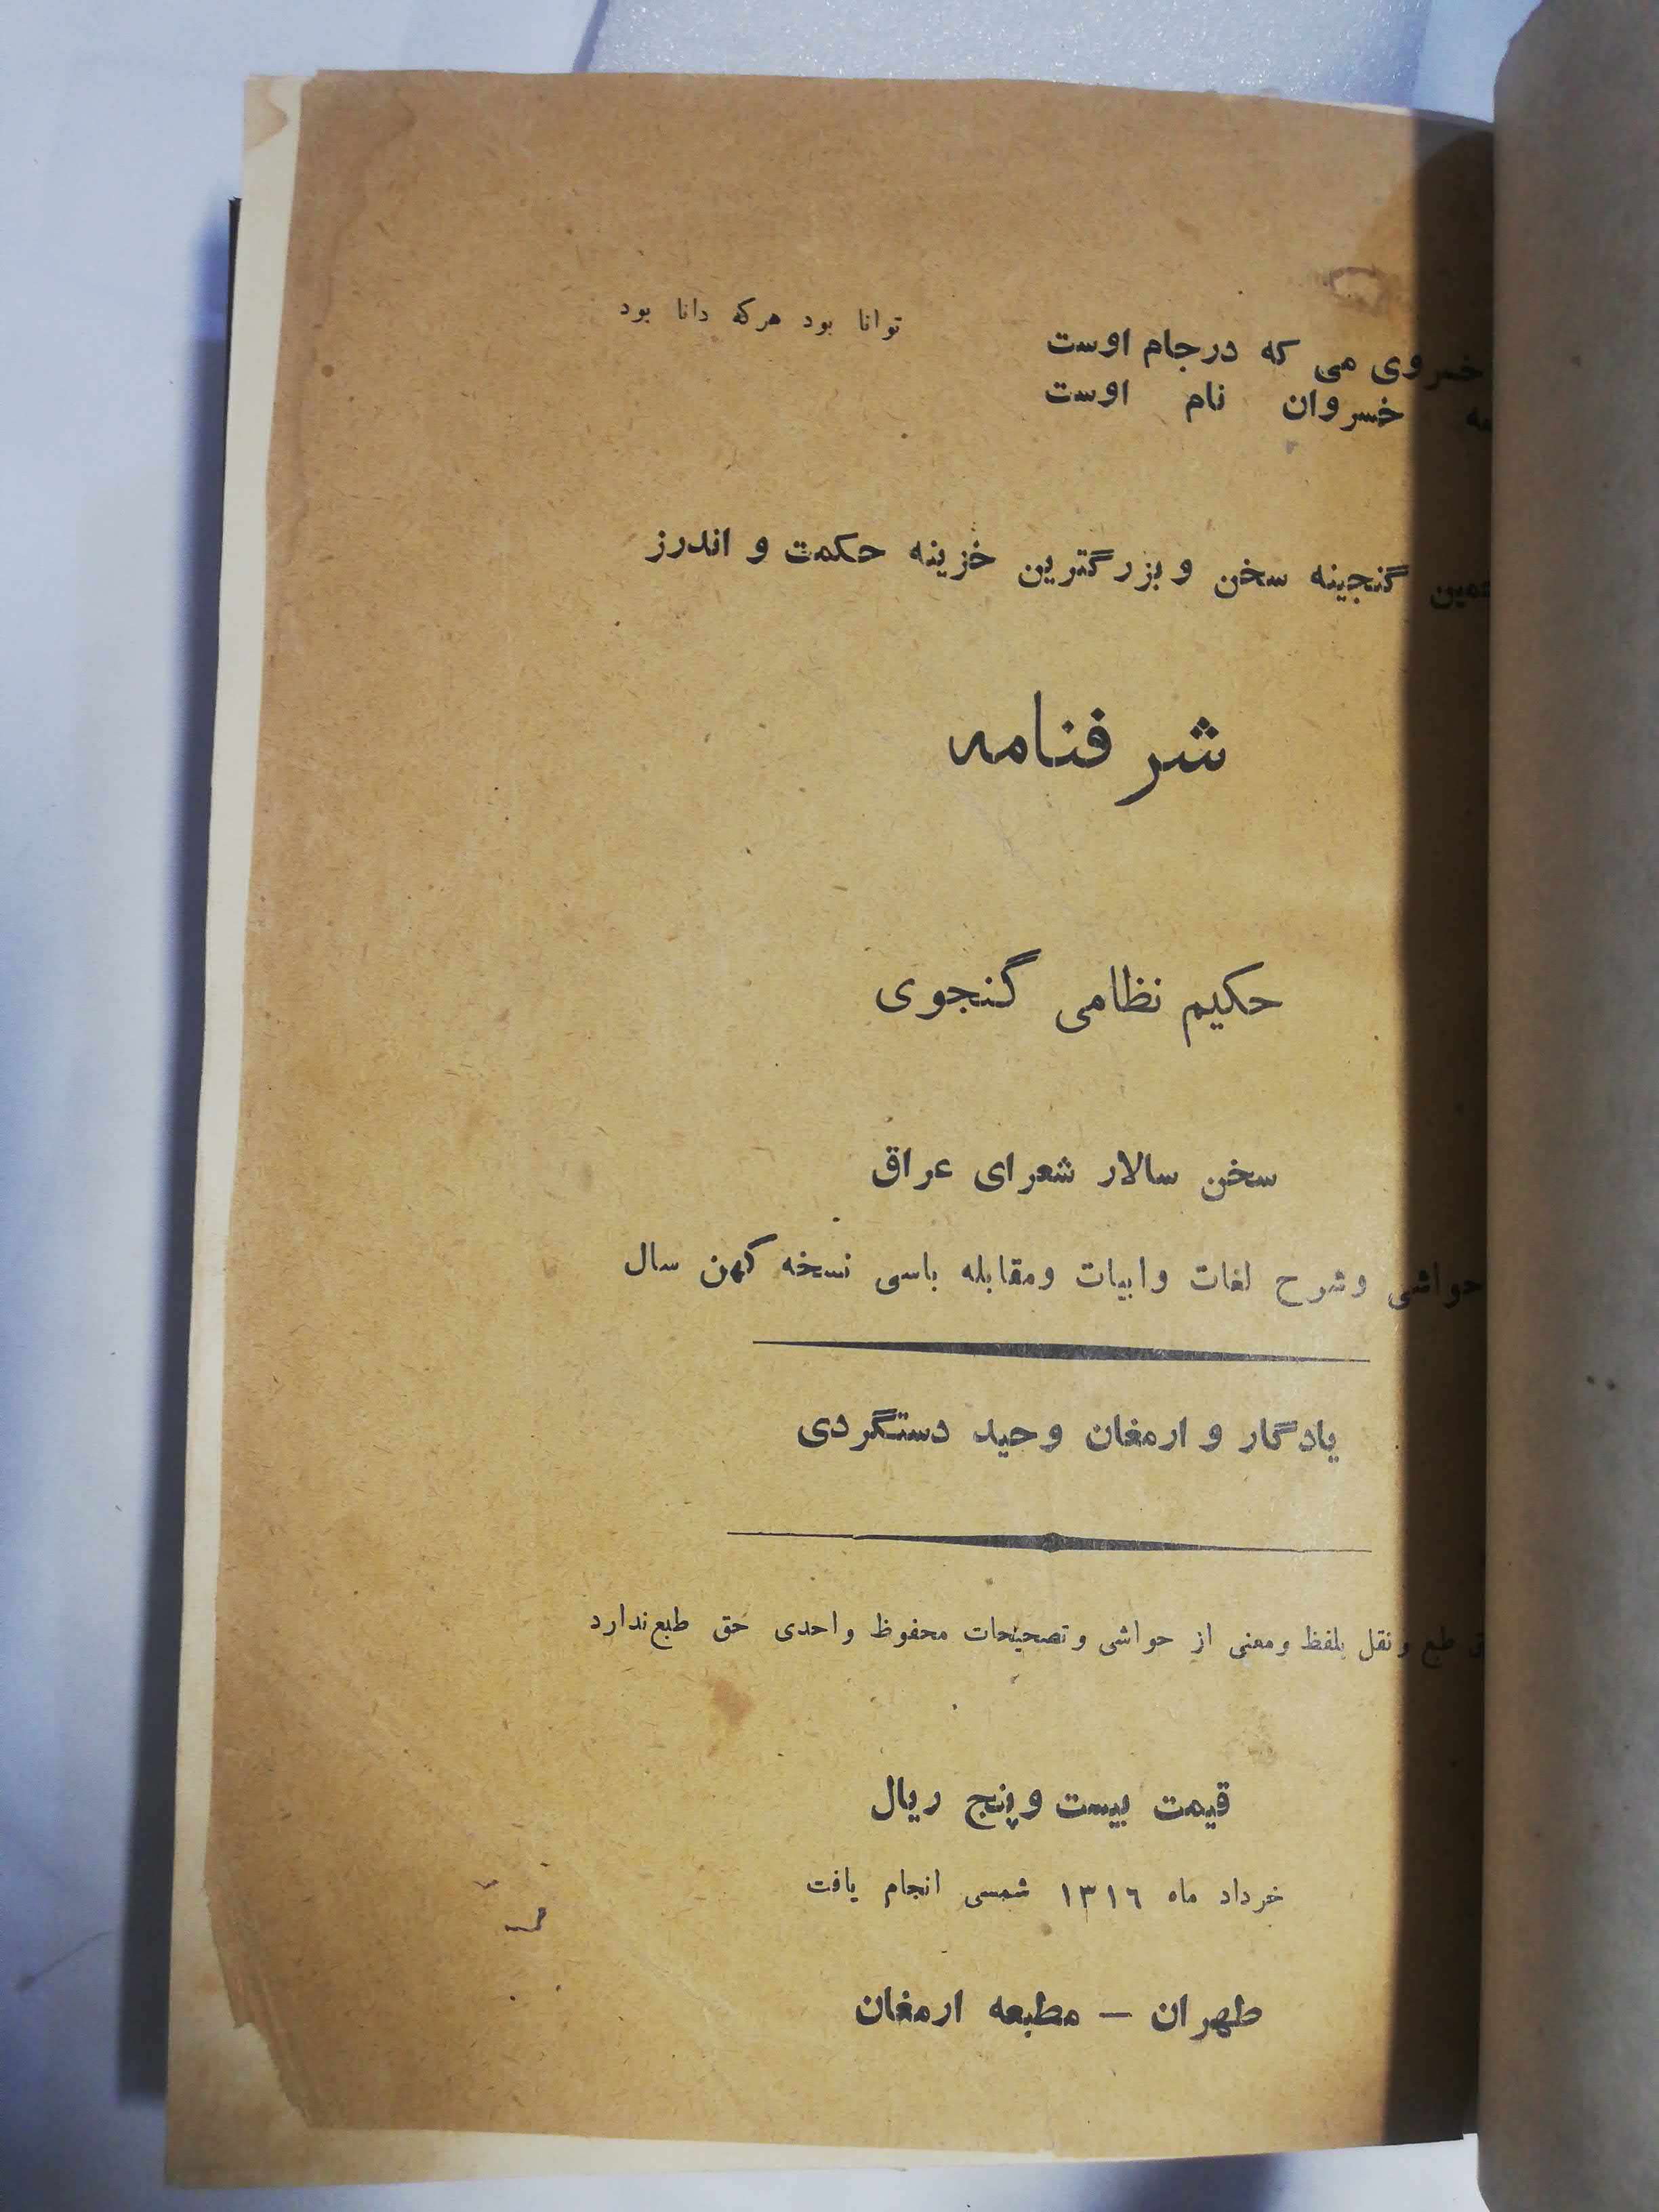 توانا بود هرکه دانا بود
خسروی می که درجام اوست
خسروان نام اوست
گنجینه سخن و بزرگترین خزینه حکمت و اندرز
شرفنامه
حکیم نظامی گنجوی
سخن سالار شعرای عراق
حواشی وشرح لغات وابیات ومقابله باسی نسخه کهن سال
یادگار و ارمغان وحید دستگردی
طبع ونقل بلفظ ومعنی از حواشی وتصحیحات محفوظ واحدی حق طبع ندارد
قیمت بیست وپنج ریال
خرداد ماه ۱۳۱٦ شمسی انجام یافت
طهران — مطبعه ارمغان